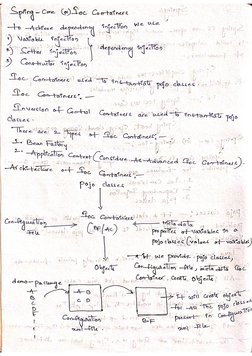 Spring-Core (or) Ioc Containers
to Achieve dependency injection we use
1) Variable injection
2) Setter injection } dependency injection
3) Constructor injection
Ioc Containers used to instantiate pojo classes
Ioc Containers:-
Inversion of Control Containers are used to instantiate pojo
classes.
There are 2 types of Ioc Containers:-
1. Bean Factory
2. Application Context (Considere As Advanced Ioc Containers).
Architecture of Ioc Containers:-
Pojo classes
Configuration
file
Ioc Containers
(BF/AC)
Metadata
properties of variables in a
pojo classes (values of variables)
Objects
* If we provide pojo classes,
Configuration file, metadata Ioc
Container create Objects.
demo-package
A
B
C
D
A B
C D
Configuration
xml-file
BF
It will create objects
present in Configuration
xml file.